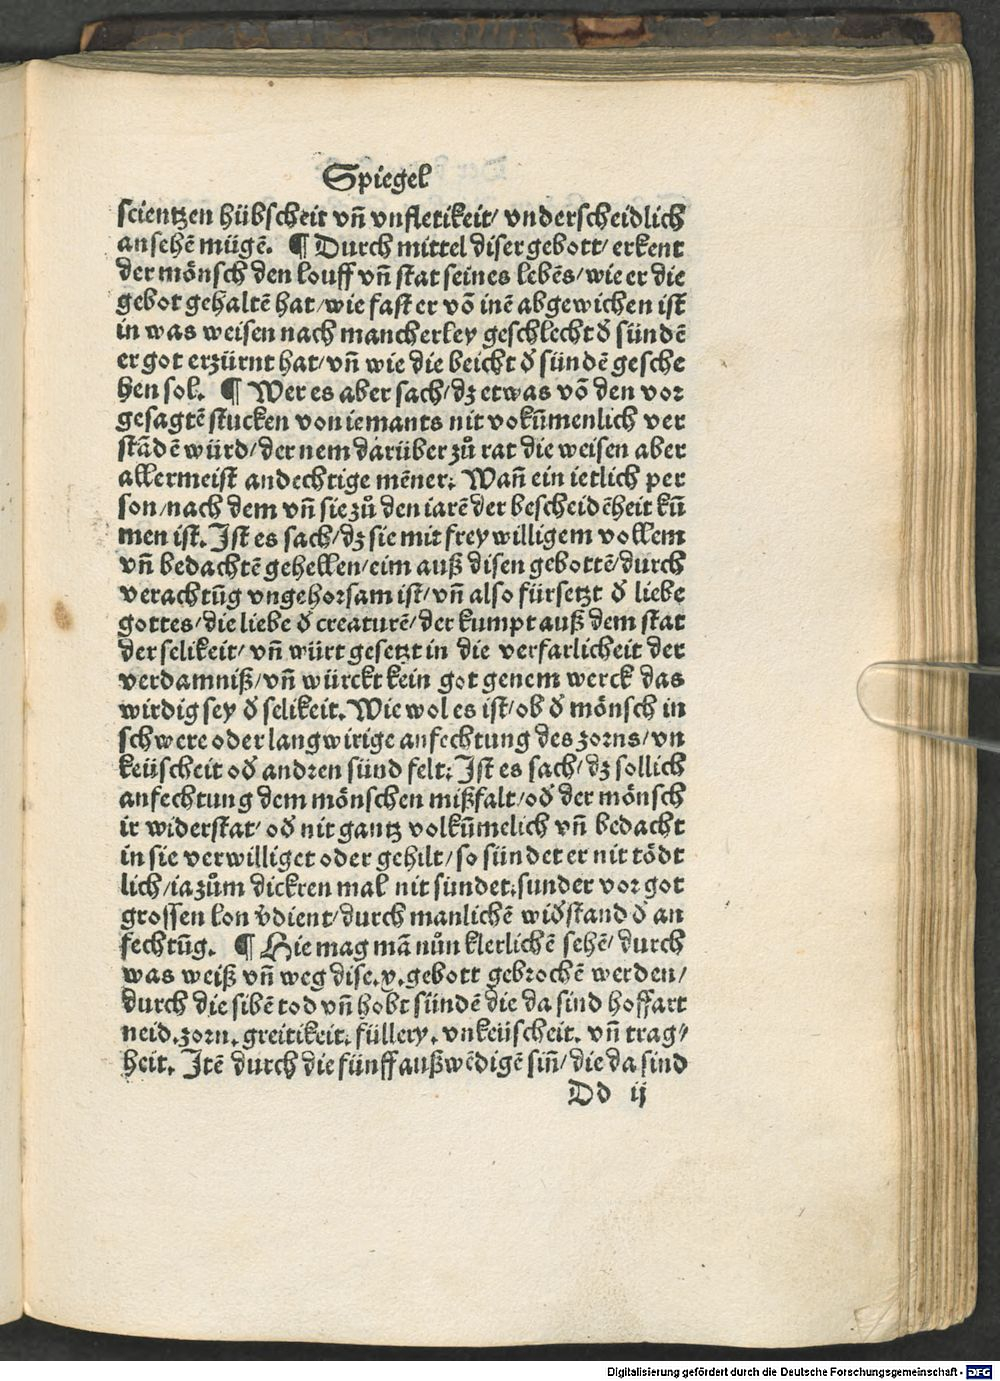 Spiegel
scientzen hübscheit vñ vnfletikeit/ vnderscheidlich
ansehē mügē. ¶ Durch mittel diser gebott/ erkent
der mönsch den louff vñ stat seines lebēs/ wie er die
gebot gehaltē hat/ wie fast er vō inē abgewichen ist
in was weisen nach mancherley geschlecht ð sündē
er got erzürnt hat/ vñ wie die beicht ð sündē gesche
hen sol. ¶ Wer es aber sach/ dz etwas vō den vor
gesagtē stucken von iemants nit vokūmenlich ver
stādē würd/ der nem darüber zů rat die weisen aber
allermeist andechtige mēner. Wañ ein ietlich per
son/ nach dem vñ sie zů den iarē der bescheidēheit kū
men ist. Ist es sach/ dz sie mit frey willigem vollem
vñ bedachtē gehellen/ eim auß disen gebottē/ durch
verachtūg vngehorsam ist/ vñ also fürsetzt ð liebe
gottes/ die liebe ð creaturē/ der kumpt auß dem stat
der selikeit/ vñ würt gesetzt in die verfarlicheit der
verdamniß/ vñ würckt kein got genem werck das
wirdig sey ð selikeit. Wie wol es ist/ ob ð mönsch in
schwere oder langwirige anfechtung des zorns/ vn
keüscheit oð andren sünd felt: Ist es sach/ dz sollich
anfechtung dem mönschen mißfalt/ oð der mönsch
ir widerstat/ oð nit gantz volkūmelich vñ bedacht
in sie verwilliget oder gehilt/ so sündet er nit tödt
lich/ ia zům dickren mal nit sündet: sunder vor got
grossen lon v̄dient/ durch manlichē wiðstand ð an
fechtūg. ¶ Hie mag mā nůn klerlichē sehē/ durch
was weiß vñ weg dise .x. gebott gebrochē werden/
durch die sibē tod vñ hobt sündē die da sind hoffart
neid. zorn. greitikeit. füllery. vnkeüscheit. vñ trag⸗
heit. Itē durch die fünff außwēdigē siñ/ die da sind
Dd ij
Digitalisierung gefördert durch die Deutsche Forschungsgemeinschaft - DFG